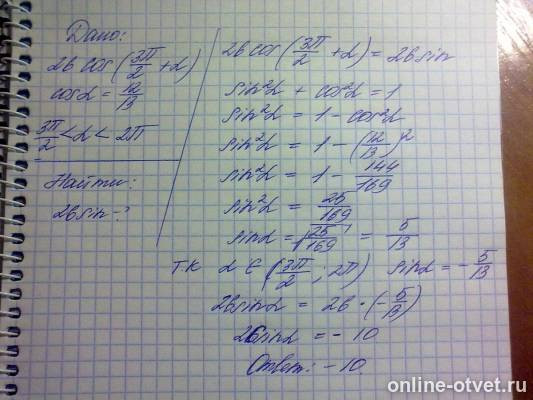 Дано:
26 cos (3π/2 + α)
cosα = 12/13
3π/2 < α < 2π
Найти:
26 sin - ?
26 cos (3π/2 + α) = 26 sin
sin²α + cos²α = 1
sin²α = 1 - cos²α
sin²α = 1 - (12/13)²
sin²α = 1 - 144/169
sin²α = 25/169
sinα = √25/169 = 5/13
т.к α ∈ (3π/2 ; 2π) sinα = - 5/13
26 sinα = 26 · (- 5/13)
26 sinα = - 10
Ответ: - 10
online-otvet.ru